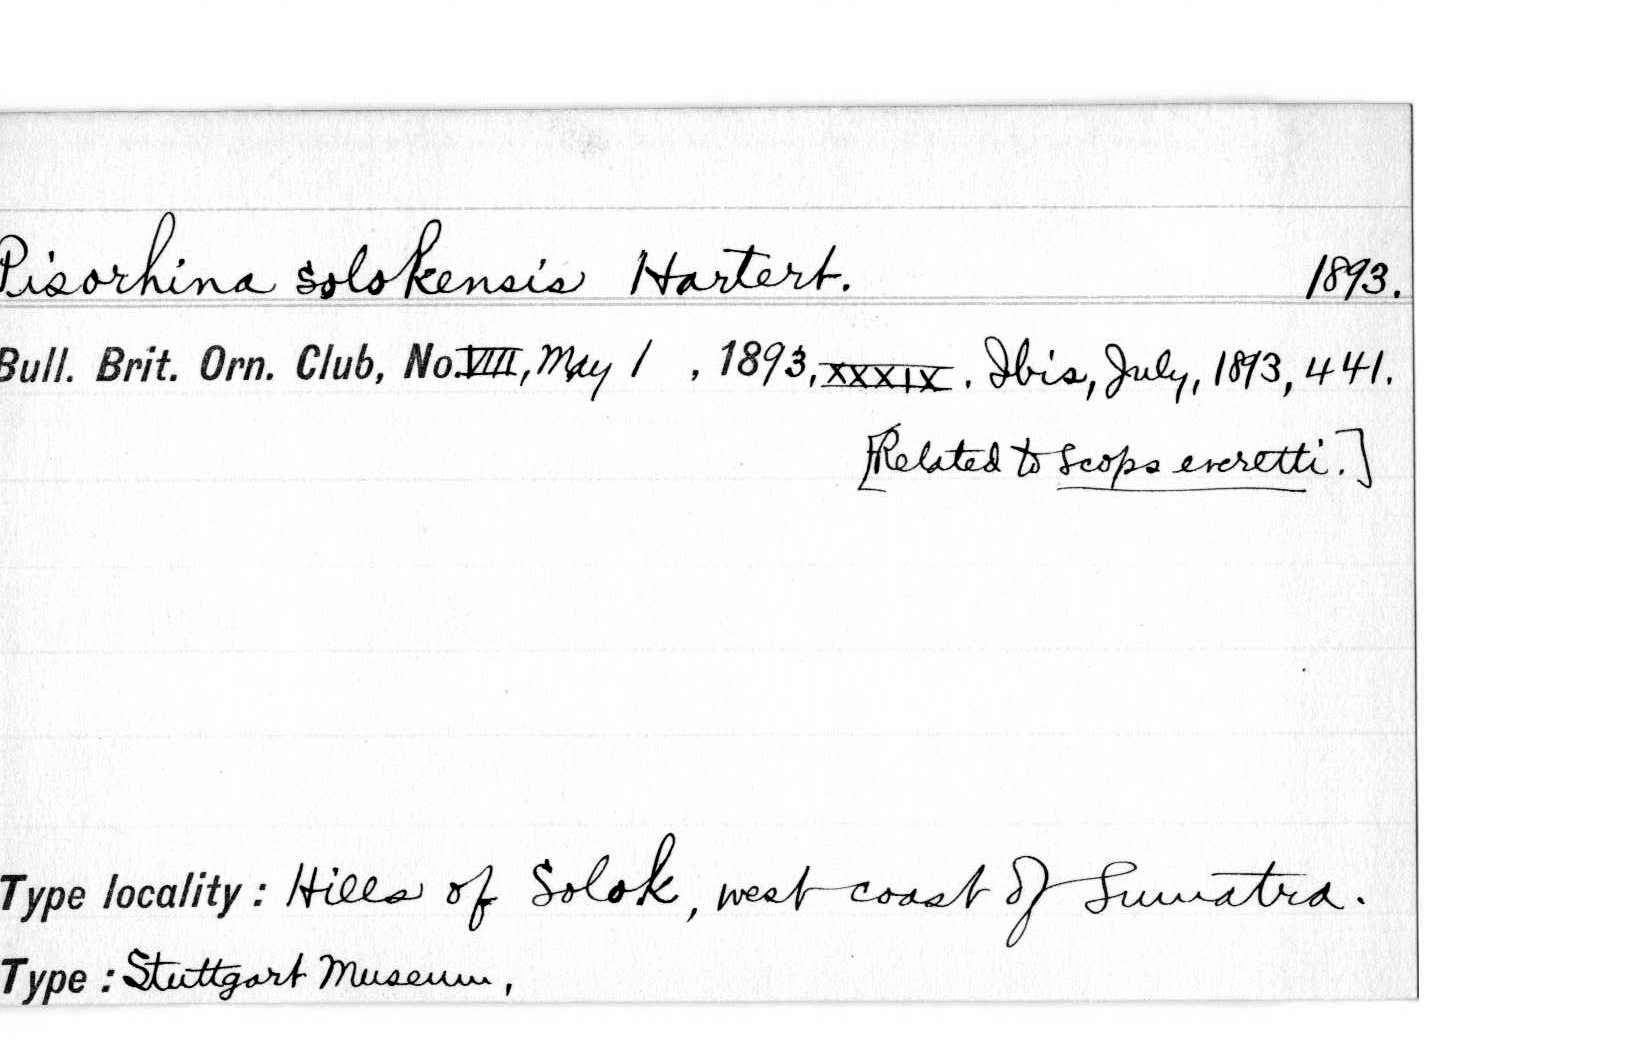 Pisorhina solokensis Hartert. 1893.
Bull. Brit. Orn. Club, No. VIII, May 1 , 1893, XXXIX. Ibis, July, 1893, 441.
[Related to Scops everetti.]
Type locality: Hills of Solok, west coast of Sumatra.
Type: Stuttgart Museum,